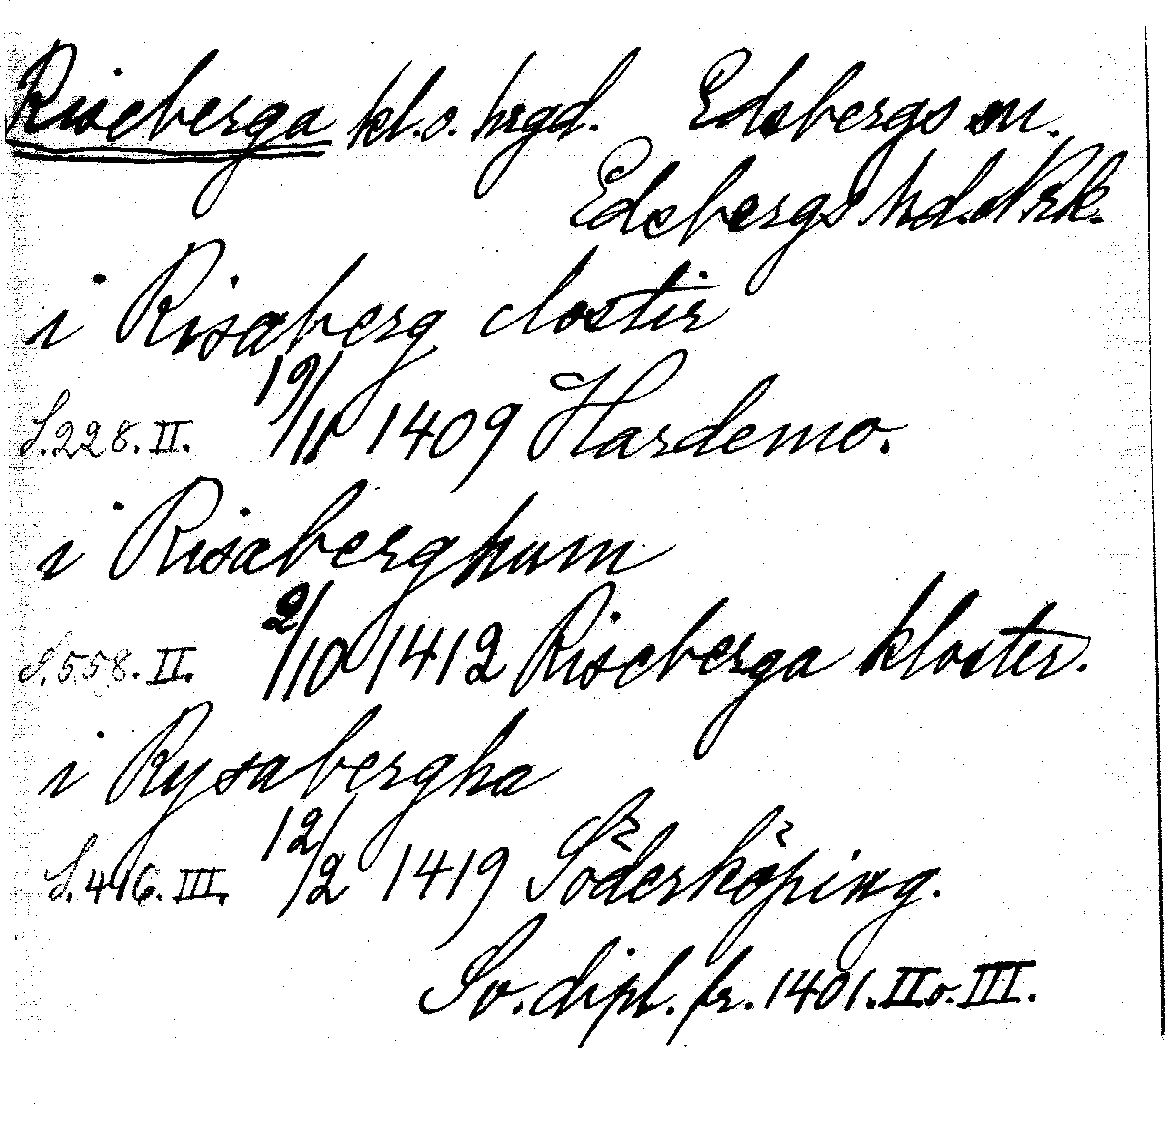 Riseberga kl. o. hrgd. Edsbergs sn.
Edsbergs hd. Nrk.
i Risaberg clostir
S. 228. II. 19/11 1409 Hardemo.
i Risaberghum
S. 558. II. 2/10 1412 Riseberga kloster.
i Rysabergha
S. 416. III. 12/2 1419 Söderköping.
Sv. dipl. fr. 1401. II o. III.